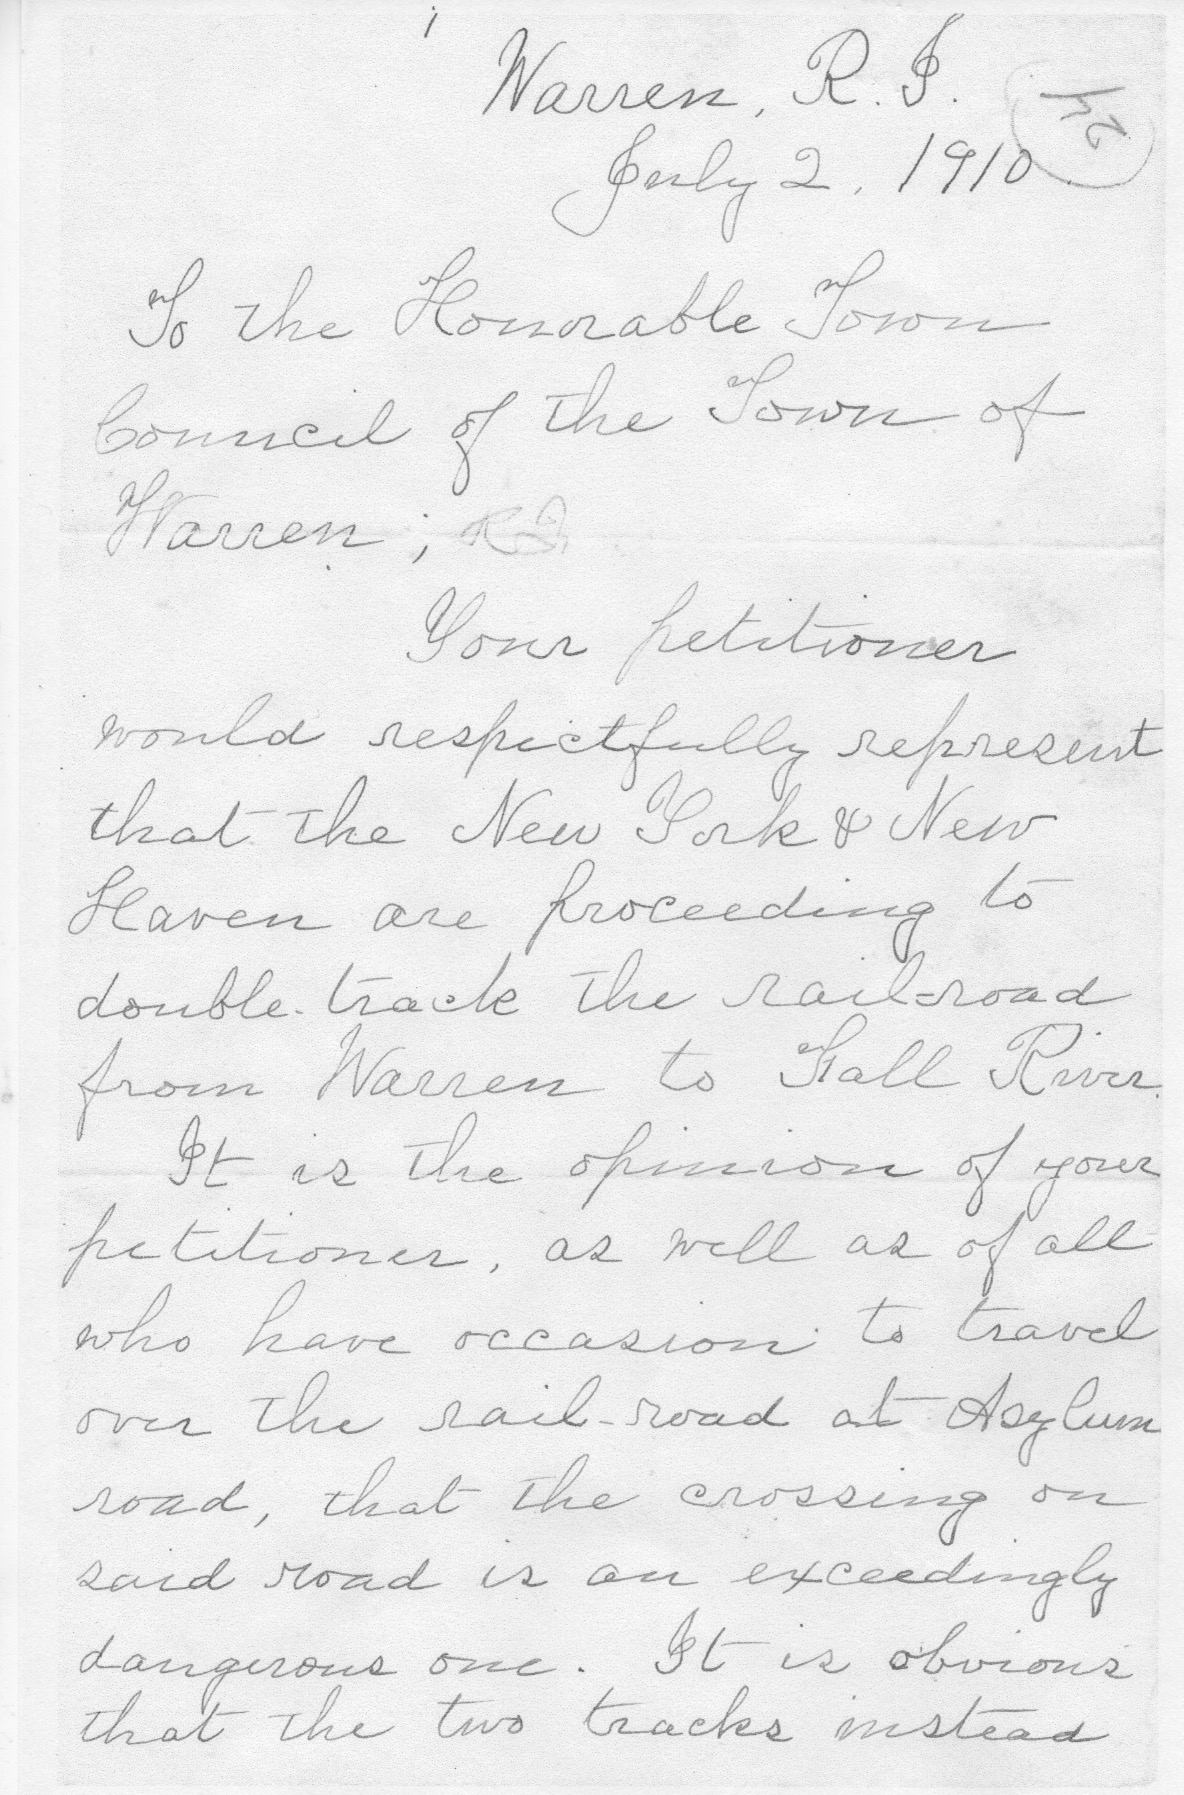 Warren, R. I.
24
July 2, 1910.
To the Honorable Town
Council of the Town of
Warren; R I
Your petitioner
would respectfully represent
that the New York & New
Haven are proceeding to
double-track the rail-road
from Warren to Fall River.
It is the opinion of your
petitioner, as well as of all
who have occasion to travel
over the rail-road at Asylum
road, that the crossing on
said road is an exceedingly
dangerous one. It is obvious
that the two tracks instead